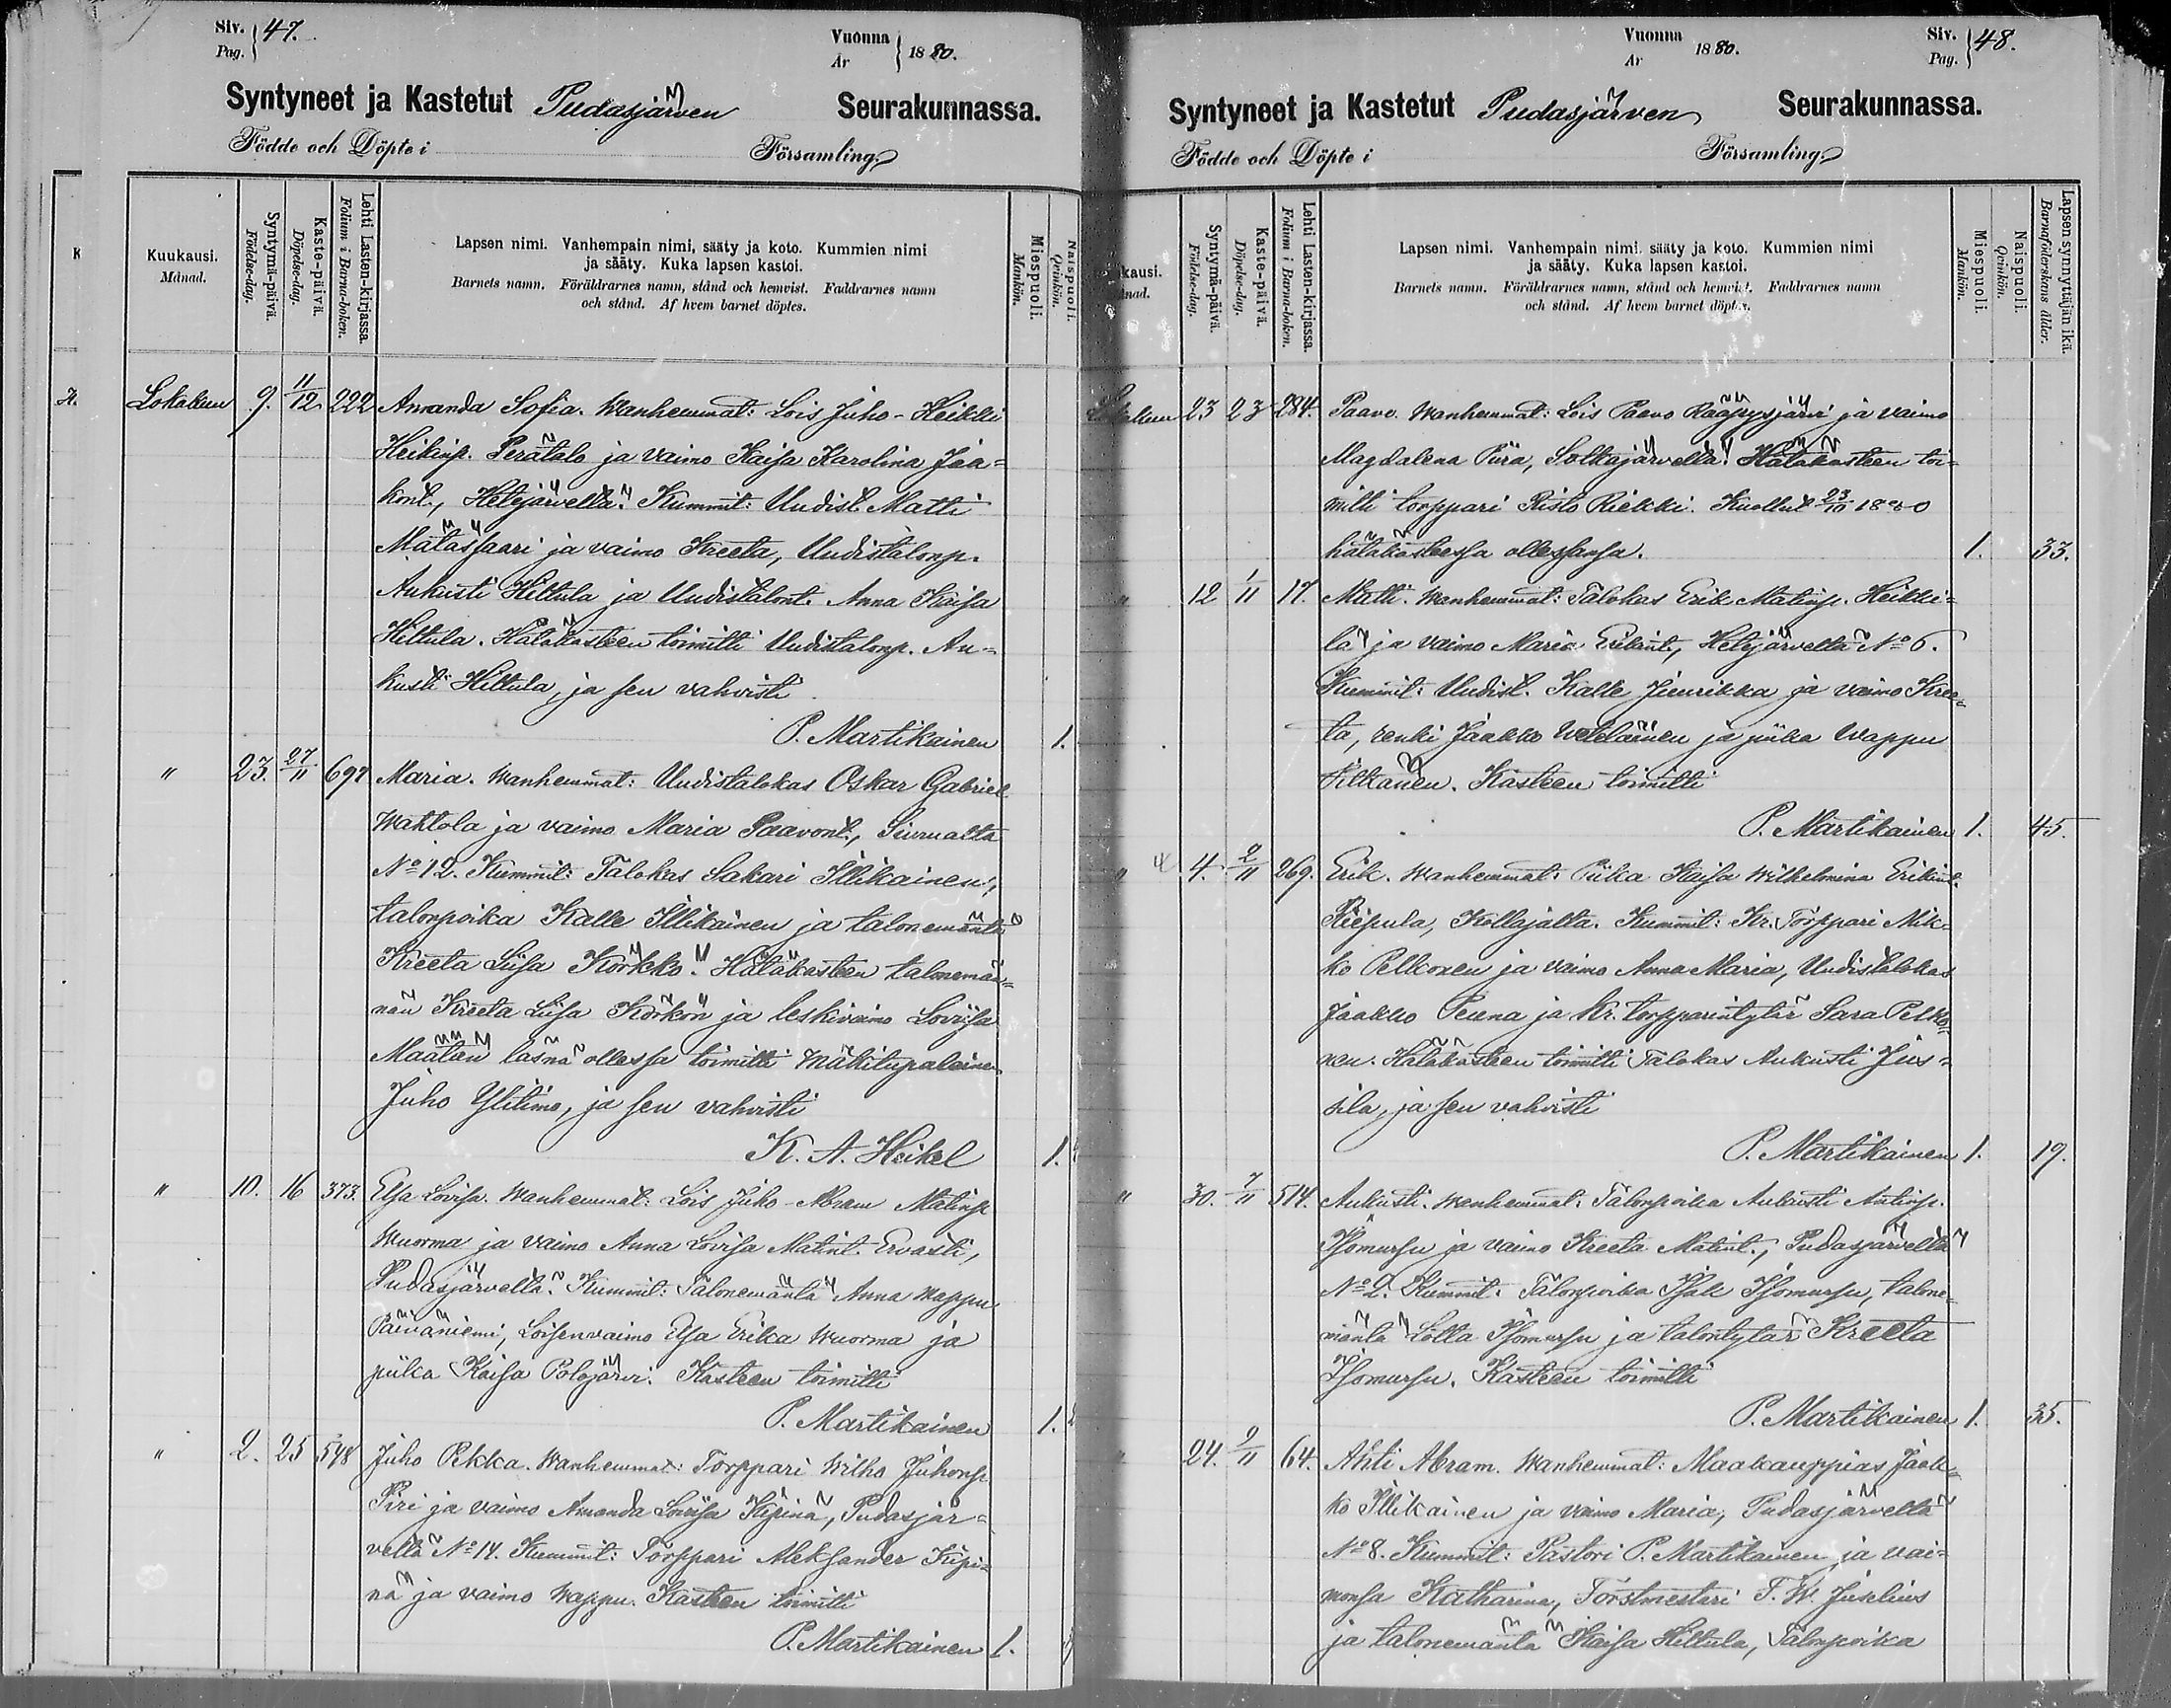 Siv. Pag. 47.
Vuonna År 1880.
Syntyneet ja Kastetut Pudasjärven Seurakunnassa.
Födde och Döpte i Församling
Kuukausi. Månad.
Syntymä-päivä. Födelse-dag.
Kaste-päivä. Döpelse-dag.
Lehti Lasten-kirjassa. Folium i Barna-boken.
Lapsen nimi. Vanhempain nimi, sääty ja koto. Kummien nimi
ja sääty. Kuka lapsen kastoi.
Barnets namn. Föräldrarnes namn, stånd och hemvist. Faddrarnes namn
och stånd. Af hvem barnet döptes.
Miespuoli. Mankön.
Naispuoli. Qvinkön.
Lokakuu 9. 11/12. 222 Amanda Sofia. Wanhemmat: Lois Juho-Heikki
Heikinp. Perätalo ja vaimo Kaisa Karolina Jaa-
kont., Hetejärveltä. Kummit: Uudist. Matti
Mätäsaari ja vaimo Kreeta, Uudistalonp.
Aukusti Hiltula ja Uudistalont. Anna Kaisa
Hiltula. Hätäkasteen toimitti Uudistalonp. Au-
kusti Hiltula, ja sen vahvisti
P. Martikainen 1.
" 23. 27/11 697 Maria. Wanhemmat: Uudistalokas Oskar Gabriel
Wahtola ja vaimo Maria Paavont., Siurualta
No 12. Kummit: Talokas Sakari Illikainen,
talonpoika Kalle Illikainen ja talonemäntä
Kreeta Liisa Körkkö. Hätäkasteen talonemän-
nän Kreeta Liisa Körkön ja leskivaimo Lovisa
Määtän läsnä ollessa toimitti Mäkitupalainen
Juho Ylitimo, ja sen vahvisti
K. A. Heikel 1.
" 10. 16 373. Elsa Lovisa. Wanhemmat: Lois Juho-Abram Matinp.
Wuorma ja vaimo Anna Lovisa Matint. Ervasti,
Pudasjärveltä. Kummit: Talonemäntä Anna Wappu
Päiväniemi, Loisenvaimo Elsa Erika Wuorma ja
piika Kaisa Polojärvi. Kasteen toimitti
P. Martikainen 1.
" 2. 25 548 Juho Pekka. Wanhemmat: Torppari Wilho Juhonp.
Piri ja vaimo Amanda Lovisa Kipinä, Pudasjär-
veltä No 14. Kummit: Torppari Aleksander Kipi-
nä ja vaimo Wappu. Kasteen toimitti
P. Martikainen 1.
Vuonna År 1880.
Siv. Pag. 48.
Syntyneet ja Kastetut Pudasjärven Seurakunnassa.
Födde och Döpte i Församling
kausi. nad.
Syntymä-päivä. Födelse-dag.
Kaste-päivä. Döpelse-dag.
Lehti Lasten-kirjassa. Folium i Barna-boken.
Lapsen nimi. Vanhempain nimi, sääty ja koto. Kummien nimi
ja sääty. Kuka lapsen kastoi.
Barnets namn. Föräldrarnes namn, stånd och hemvist. Faddrarnes namn
och stånd. Af hvem barnet döptes.
Miespuoli. Mankön.
Naispuoli. Qvinkön.
Lapsen synnyttäjän ikä. Barnaföderskans ålder.
Lokakuu 23 23 284. Paavo. Wanhemmat: Lois Paavo Rääpysjärvi ja vaimo
Magdalena Piira, Sotkajärveltä. Hätäkasteen toi-
mitti torppari Risto Riekki. Kuollut 23/10 1880
hätäkasteessa ollessansa. 1. 33.
" 12 1/11 17. Matti. Wanhemmat: Talokas Erik Matinp. Heikki-
lä ja vaimo Maria Erikint., Hetejärveltä No 6.
Kummit: Uudist. Kalle Jienrikka ja vaimo Kree-
ta, renki Jaakko Weteläinen ja piika Wappu
Kiltanen. Kasteen toimitti
P. Martikainen 1. 45.
" 4. 2/11 269. Erik. Wanhemmat: Piika Kaisa Wilhelmina Erikint.
Riepula, Kollajalta. Kummit: Kr. Torppari Mik-
ko Pelkonen ja vaimo Anna Maria, Uudistalokas
Jaakko Peuna ja Kr. torpparintytär Sara Pelko-
nen. Hätäkasteen toimitti Talokas Aukusti Jus-
sila, ja sen vahvisti
P. Martikainen 1. 19.
" 30. 7/11 514. Aukusti. Wanhemmat: Talonpoika Aukusti Antinp.
Isomursu ja vaimo Kreeta Matint., Pudasjärveltä
No 2. Kummit: Talonpoika Isak Isomursu, talone-
mäntä Lotta Isomursu ja talontytär Kreeta
Isomursu. Kasteen toimitti
P. Martikainen 1. 35.
" 24. 9/11 64. Ahti Abram. Wanhemmat: Maakauppias Jaak-
ko Illikainen ja vaimo Maria, Pudasjärveltä
No 8. Kummit: Pastori P. Martikainen ja vai-
monsa Katharina, Forstmestari F. W. Juselius
ja talonemäntä Kaisa Hiltula, Talonpoika